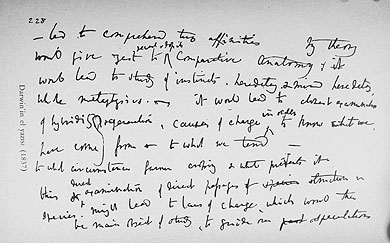 228
– led to comprehend two affinities My theory
would give zest to recent & fossil Comparative Anatomy, & it
would lead to study of instincts, heredetary & mind heredetary,
whole metaphysics. – it would lead to closest examination
of hybridity regeneration, causes of change in order to know what we
have come from & to what we tend –
to what circumstances favour crossing & what prevents it
this & direct examination of direct passages of species structure in
species, might lead to laws of change, which would then
be main object of study, to guide our past speculations
Darwin'in el yazısı (1837)